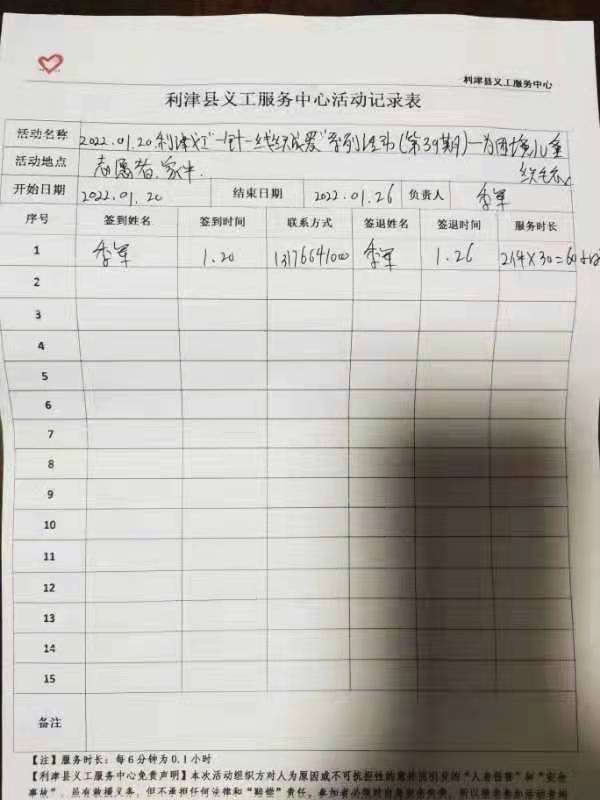 利津县义工服务中心
利津县义工服务中心活动记录表
活动名称 2022.01.20.利津义工"一针一线织成爱"系列活动(第39期)—为困境儿童
织毛衣
活动地点 志愿者家中.
开始日期 2022.01.20 结束日期 2022.01.26 负责人 季军
序号 签到姓名 签到时间 联系方式 签退姓名 签退时间 服务时长
1 季军 1.20 13176641000 季军 1.26 2件×30=60小时
2
3
4
5
6
7
8
9
10
11
12
13
14
15
备注
【注】服务时长:每6分钟为0.1小时
【利津县义工服务中心免责声明】本次活动组织方对人为原因或不可抗拒性的意外而引发的"人身伤害"和"安全
事故",虽有救援义务,但不承担任何法律和"赔偿"责任。